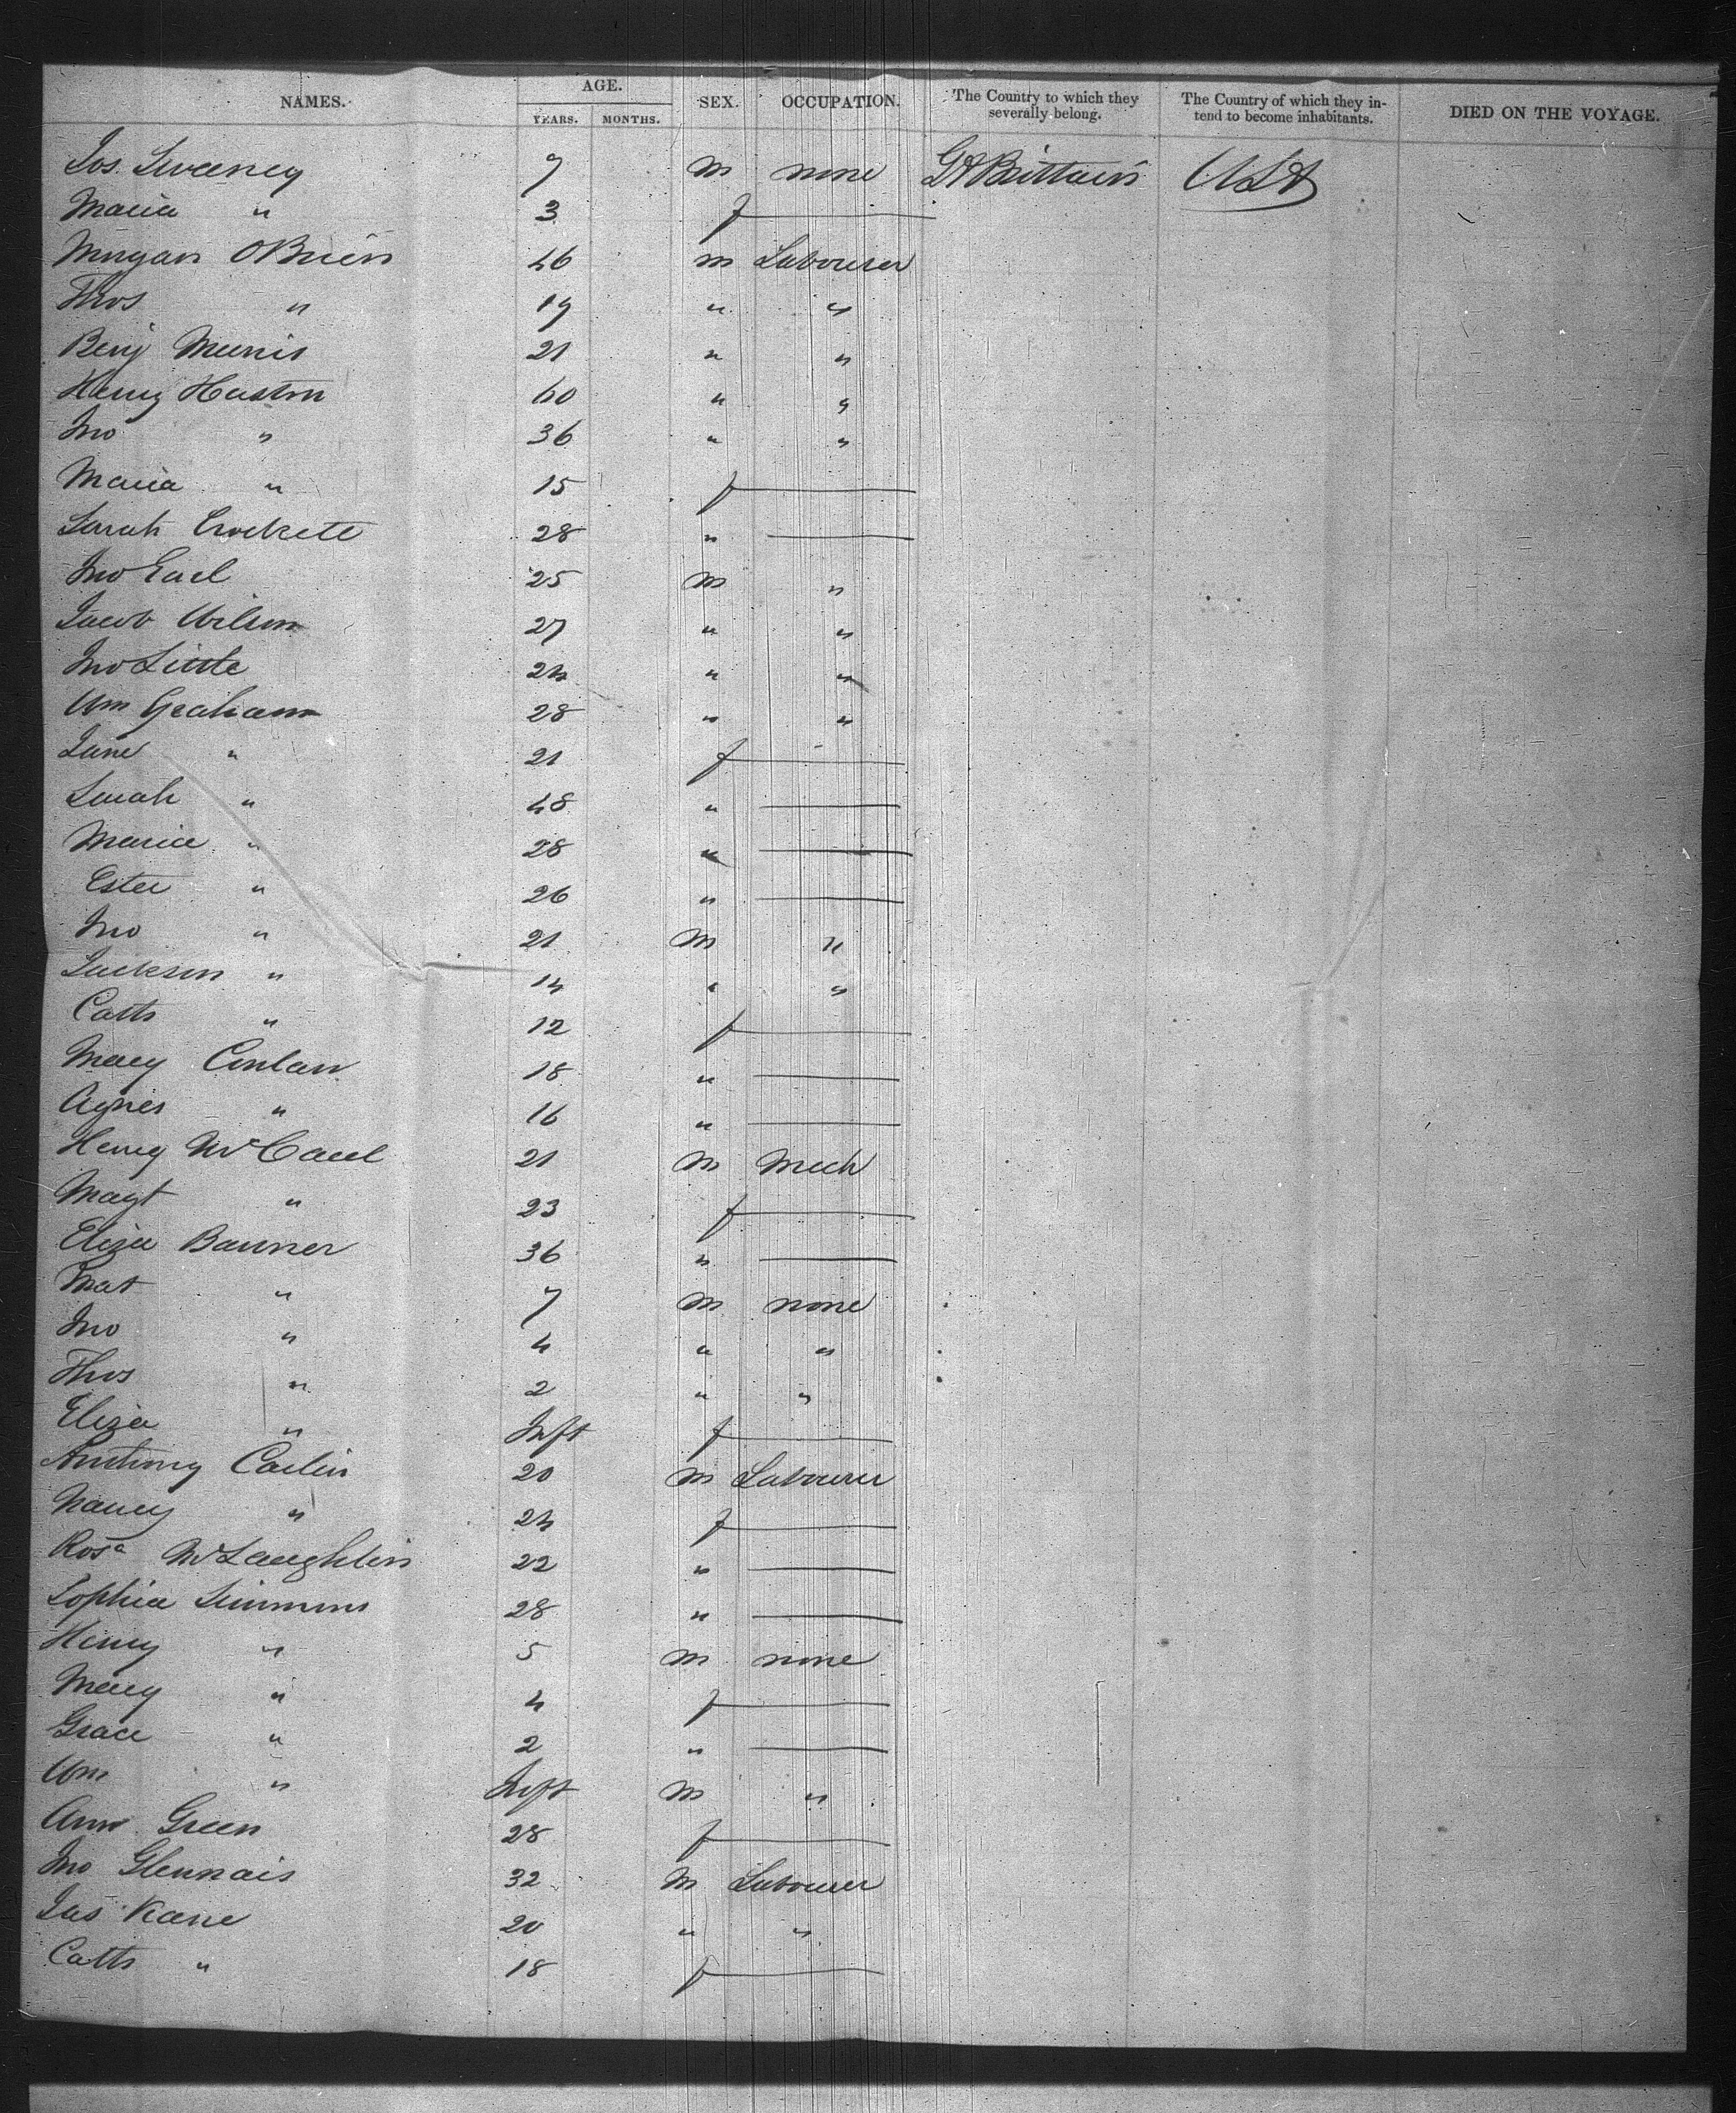 NAMES. AGE. YEARS. MONTHS. SEX. OCCUPATION. The Country to which they severally belong. The Country of which they intend to become inhabitants. DIED ON THE VOYAGE.
Jos. Sweeney 7 m none Gt Brittain USA
Maria " 3 f
Morgan OBrien 46 m Labourer
Thos " 19 " "
Benj Morris 21 " "
Henry Huston 60 " "
Jno " 36 " "
Maria " 15 f
Sarah Crockett 28 "
Jno Earl 25 m "
Jacob Wilson 27 " "
Jno Little 24 " "
Wm Graham 28 " "
Jane " 21 f
Sarah " 48 "
Maria " 28 "
Ester " 26 "
Jno " 21 m "
Jackson " 14 " "
Cath " 12 f
Mary Conlan 18 "
Agnes " 16 "
Henry McCaul 21 m Mech
Magt " 23 f
Eliza Banner 36 "
Mat " 7 m none
Jno " 4 " "
Thos " 2 " "
Eliza " Inft f
Anthony Carlin 20 m Labourer
Nancy " 24 f
Rosa McLaughlin 22 "
Sophia Simmons 28 "
Henry " 5 m none
Mary " 4 f
Grace " 2 "
Wm " Inft m "
Ann Green 28 f
Jno Glennais 32 m Labourer
Jas Kane 20 " "
Cath " 18 f